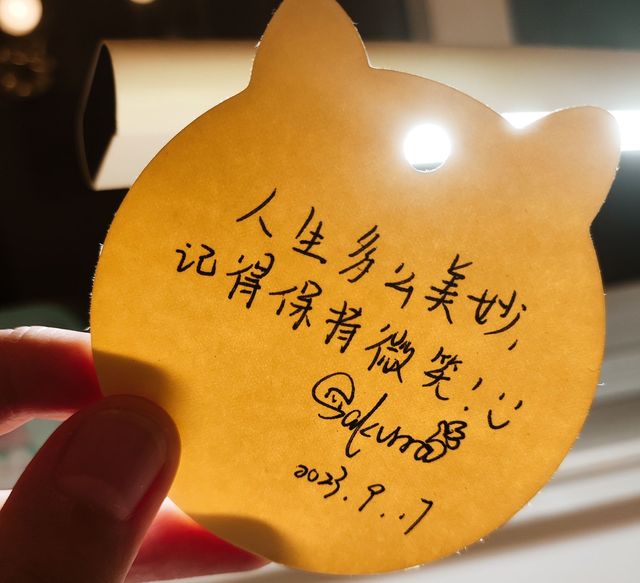 人生多么美妙,
记得保持微笑! :)
@Sakura
2023.9..7